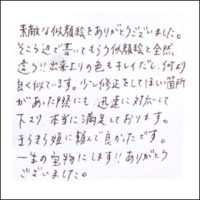 素敵な似顔絵をありがとうございました。
そこら辺で書いてもらう似顔絵と全然
違う!!出来上りの色もキレイだし、何より
良く似ています。少し修正をしてほしい箇所
があった際にも、迅速に対応して
下さり、本当に満足しております。
まろまろ娘に頼んで良かったです。
一生の宝物にします!!ありがとう
ございました。